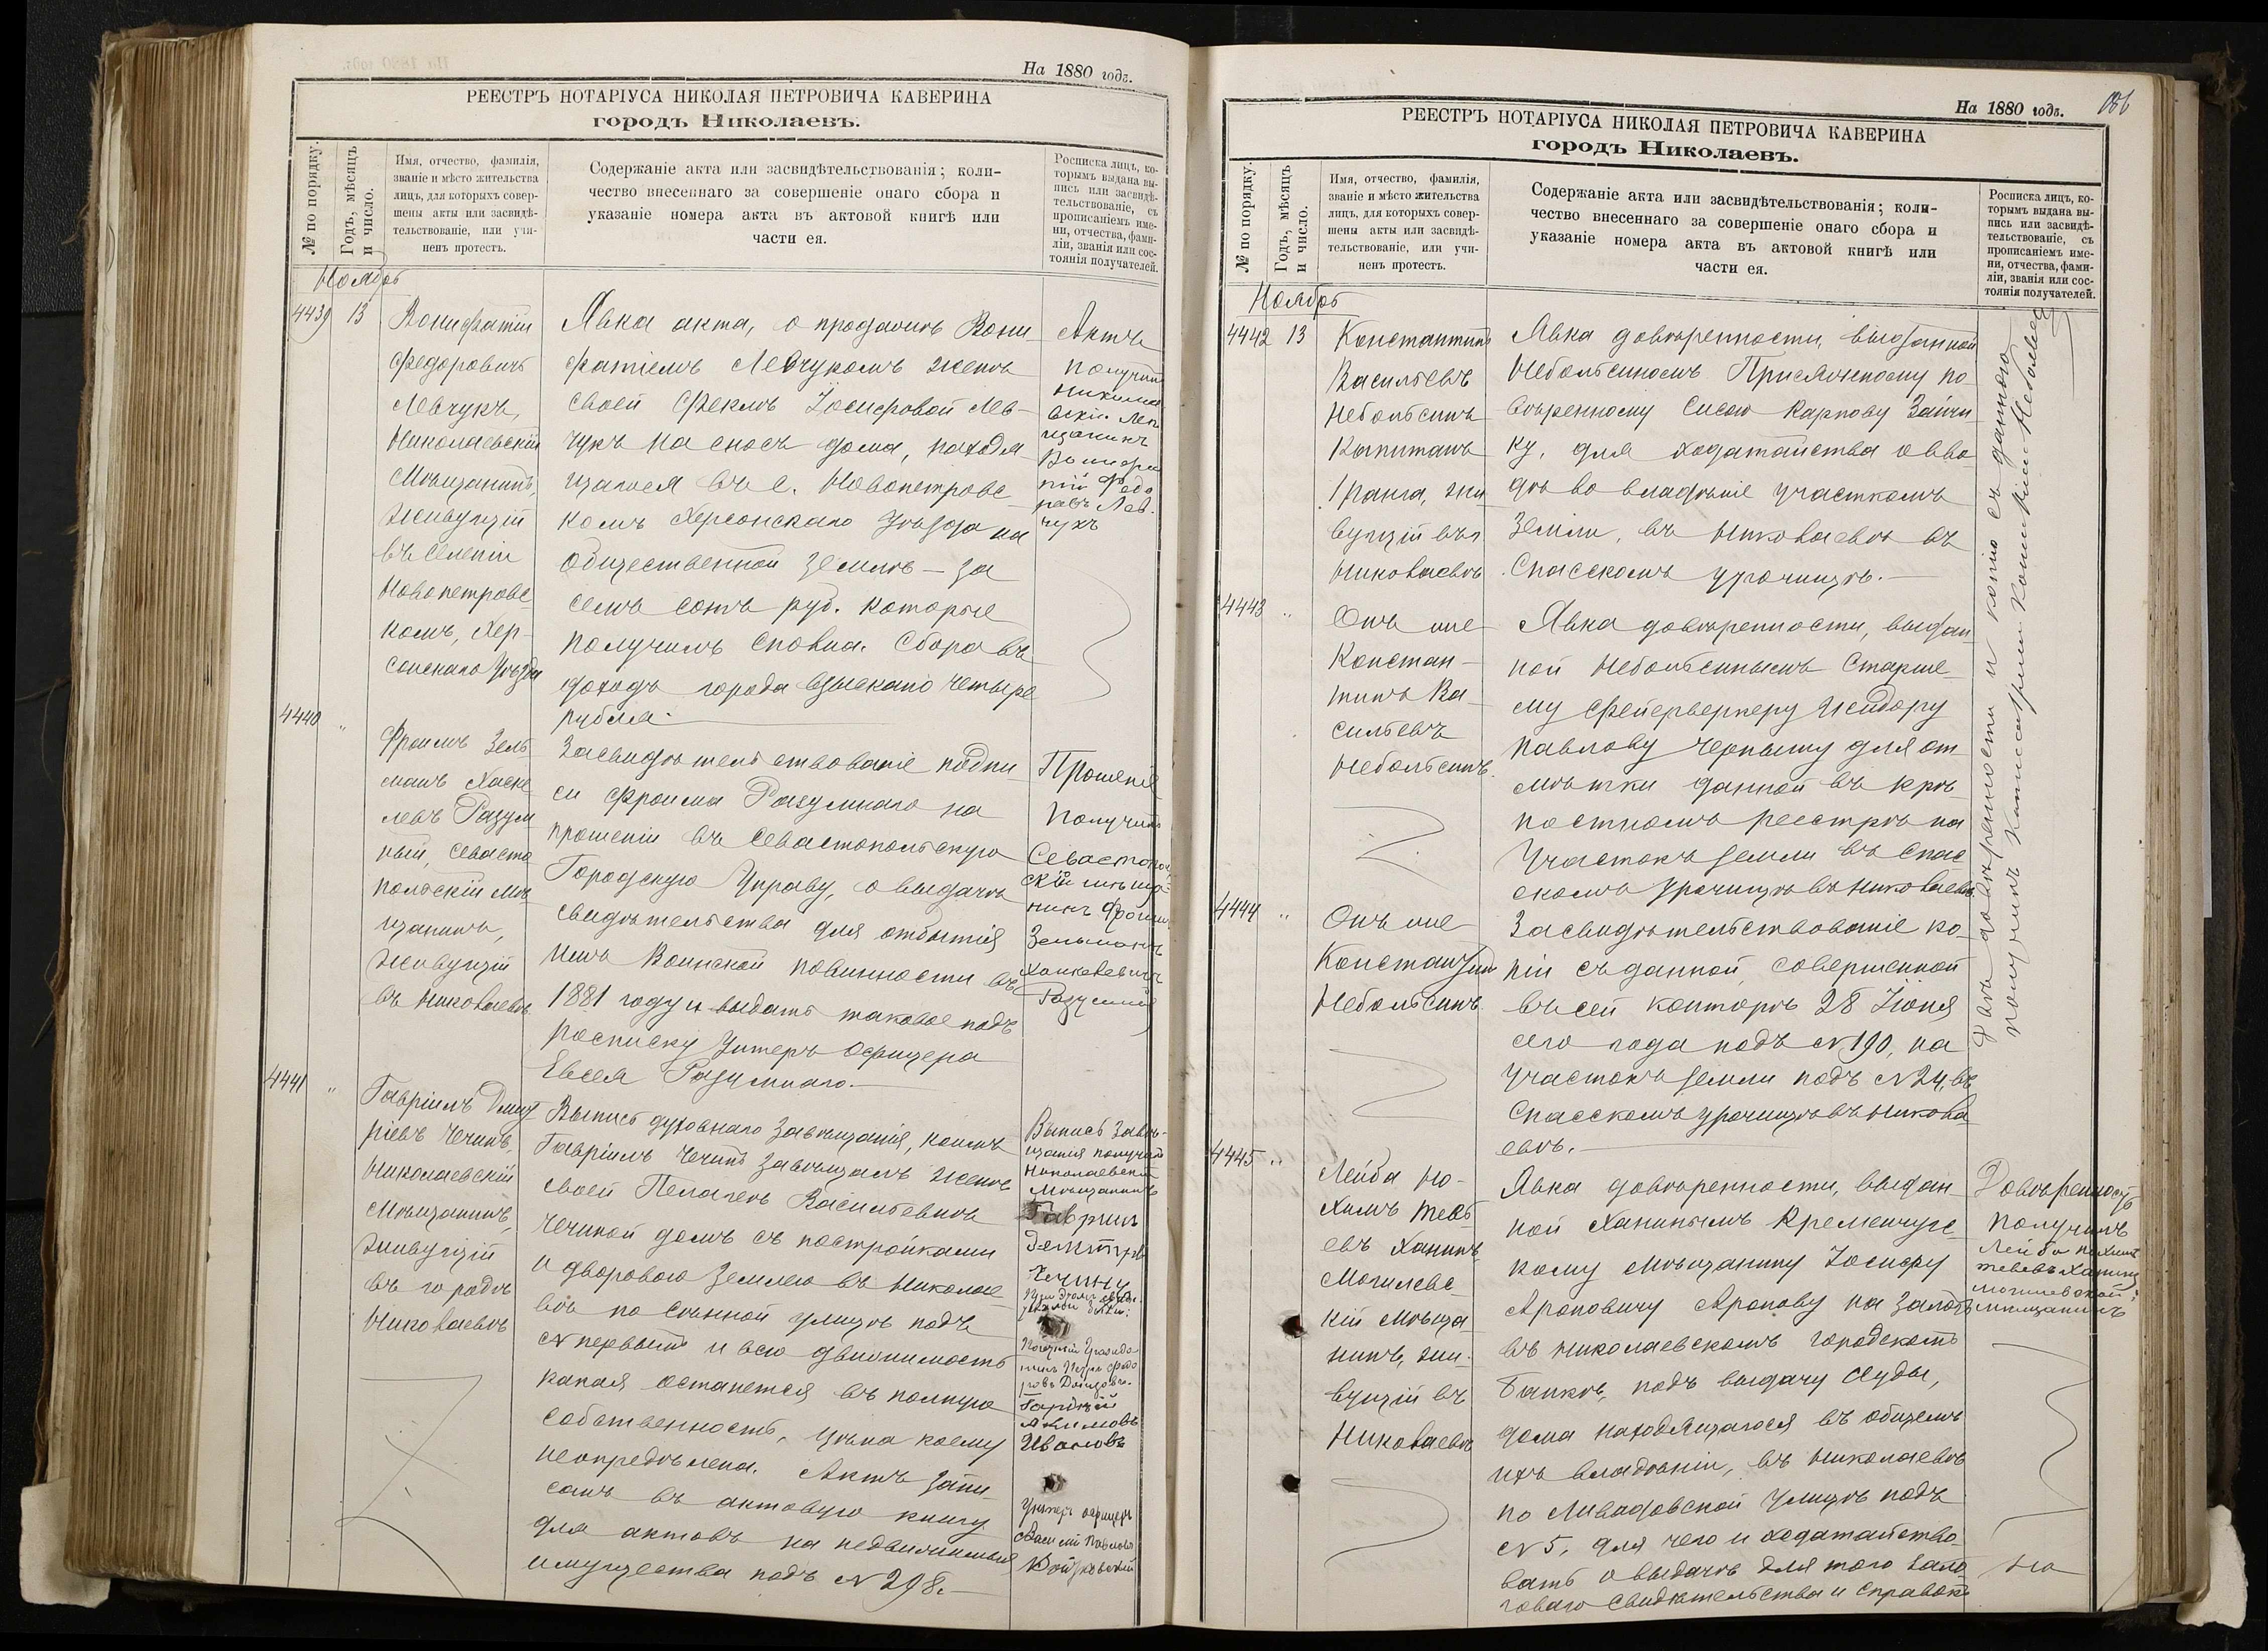 На 1880 годъ.
РЕЕСТРЪ НОТАРІУСА НИКОЛАЯ ПЕТРОВИЧА КАВЕРИНА
городъ Николаевъ.
№ по порядку.
Годъ, мѣсяцъ
и число.
Имя, отчество, фамилія,
званіе и мѣсто жительства
лицъ, для которыхъ совер-
шены акты или засвидѣ-
тельствованіе, или учи-
ненъ протестъ.
Содержаніе акта или засвидѣтельствованія; коли-
чество внесеннаго за совершеніе онаго сбора и
указаніе номера акта въ актовой книгѣ или
части ея.
Росписка лицъ, ко-
торымъ выдана вы-
пись или засвидѣ-
тельствованіе, съ
прописаніемъ име-
ни, отчества, фами-
ліи, званія или сос-
тоянія получателей.
Ноябрь
4439
13
Вонифатій
Федоровичъ
Левчукъ,
Николаевскій
Мѣщанинъ,
живущій
въ селеніи
Новопетровс
комъ, Хер-
сонскаго Уѣзда
Явка акта, о продажѣ Вони
фатіемъ Левчукомъ женѣ
своей Феклѣ Іосифовой Лев-
чукъ на сносъ дома, находя
щагося въ с. Новопетровс
комъ Херсонскаго Уѣзда на
общественной землѣ – за
семь сотъ руб. которые
получилъ сполна. Сбора въ
доходъ города взыскано четыре
рубля.
Актъ
получилъ
Вонифа
тій Федо
ровъ Лев-
чукъ
4440
"
Фроимъ Зель
манъ Хаске
левъ Разум
ный, Севасто
польскій мѣ
щанинъ,
живущій
въ Николаевѣ
Засвидѣтельствованіе подпи
си Фроима Разумнаго на
прошеніи въ Севастопольскую
Городскую Управу, о выдачѣ
свидѣтельства для отбытія
имъ Воинской повинности въ
1881 году и выдать таковое подъ
росписку Унтеръ Офицера
Евсея Разумнаго.
Прошеніе
получилъ
Севастополь
скій мѣща-
нинъ Фроимъ
Зельманъ
Хаскелевичъ
Разумный
4441
"
Гавріилъ Дмит
ріевъ Чечинъ,
Николаевскій
Мѣщанинъ,
живущій
въ городѣ
Николаевѣ
Выпись духовнаго завѣщанія, коимъ
Гавріилъ Чечинъ завѣщалъ женѣ
своей Пелагеѣ Васильевнѣ
Чечиной домъ съ постройками
и дворовою землею въ Николае
вѣ по Сѣнной улицѣ подъ
№ первымъ и всю движимость
какая останется въ полную
собственность, цѣна коему
неопредѣлена. Актъ запи
санъ въ актовую книгу
для актовъ на недвижимыя
имущества подъ № 298.
Выпись завѣ-
щанія получилъ
Николаевскій
Мѣщанинъ
Гаврилъ
Чечинъ
Акимовъ
Ивановъ
Унтеръ офицеръ
На 1880 годъ.
186
РЕЕСТРЪ НОТАРІУСА НИКОЛАЯ ПЕТРОВИЧА КАВЕРИНА
городъ Николаевъ.
№ по порядку.
Годъ, мѣсяцъ
и число.
Имя, отчество, фамилія,
званіе и мѣсто жительства
лицъ, для которыхъ совер-
шены акты или засвидѣ-
тельствованіе, или учи-
ненъ протестъ.
Содержаніе акта или засвидѣтельствованія; коли-
чество внесеннаго за совершеніе онаго сбора и
указаніе номера акта въ актовой книгѣ или
части ея.
Росписка лицъ, ко-
торымъ выдана вы-
пись или засвидѣ-
тельствованіе, съ
прописаніемъ име-
ни, отчества, фами-
ліи, званія или сос-
тоянія получателей.
Ноябрь
4442
13
Константинъ
Васильевъ
Небольсинъ
Капитанъ
1 ранга, жи
вущій въ
Николаевѣ
Явка довѣренности, выданной
Небольсинымъ Присяжному по
вѣренному Сисою Карпову Зайчи
ку, для ходатайства о вво
дѣ во владѣніе участкомъ
земли, въ Николаевѣ въ
Спасскомъ урочищѣ.
4443
"
Онъ же
Констан-
тинъ Ва
сильевъ
Небольсинъ.
Явка довѣренности, выдан
ной Небольсинымъ Старше
му Фейерверкеру Исидору
Павлову Черныму для от
мѣтки данной въ крѣ
постномъ реестрѣ на
участокъ земли въ Спас
скомъ урочищѣ въ Николаевѣ.
4444
"
Онъ же
Константинъ
Небольсинъ.
Засвидѣтельствованіе ко
піи съ данной, совершенной
въ сей конторѣ 28 Іюня
сего года подъ № 190, на
участокъ земли подъ № 24, въ
Спасскомъ урочищѣ въ Никола
евѣ.
Двѣ довѣренности и копію съ данною
получилъ
4445
"
Лейба Но-
химъ Тевь
евъ Ханинъ,
Могилевс
кій Мѣща
нинъ, жи-
вущій въ
Николаевѣ
Явка довѣренности, выдан
ной Ханинымъ Кременчугс
кому мѣщанину Іосифу
Ароновичу Аронову на залогъ
въ Николаевскомъ городскомъ
Банкѣ, подъ выдачу ссуды,
дома находящагося въ общемъ
ихъ владѣніи, въ Николаевѣ
по Ливадовской улицѣ подъ
№ 5, для чего и ходатайство
вать о выдачѣ для того зало
говаго свидѣтельства и справокъ
Довѣренность
получилъ
Лейба Нохимъ
Тевевъ Ханинъ
могилевской
мещанинъ